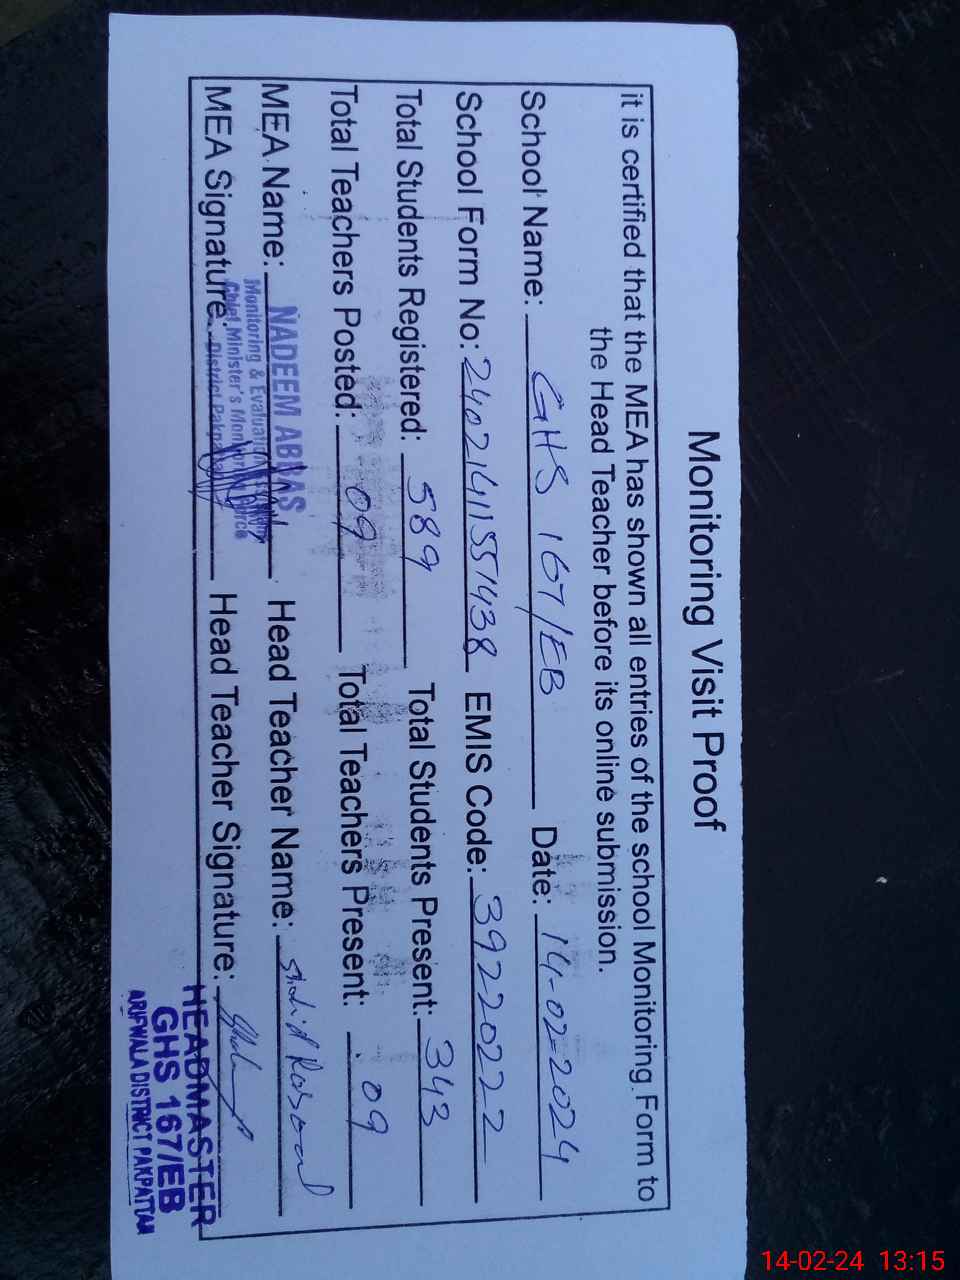 Monitoring Visit Proof
it is certified that the MEA has shown all entries of the school Monitoring Form to
the Head Teacher before its online submission.
School Name: GHS 167/EB Date: 14-02-2024
School Form No: 24021411551438 EMIS Code: 39220222
Total Students Registered: 589 Total Students Present: 343
Total Teachers Posted: 09 Total Teachers Present: 09
MEA Name: NADEEM ABBAS Head Teacher Name: Shahid Rasool
Monitoring & Evaluation
Chief Minister's Monitoring Force
District Pakpattan
MEA Signature: Head Teacher Signature:
HEADMASTER
GHS 167/EB
ARIFWALA DISTRICT PAKPATTAN
14-02-24 13:15